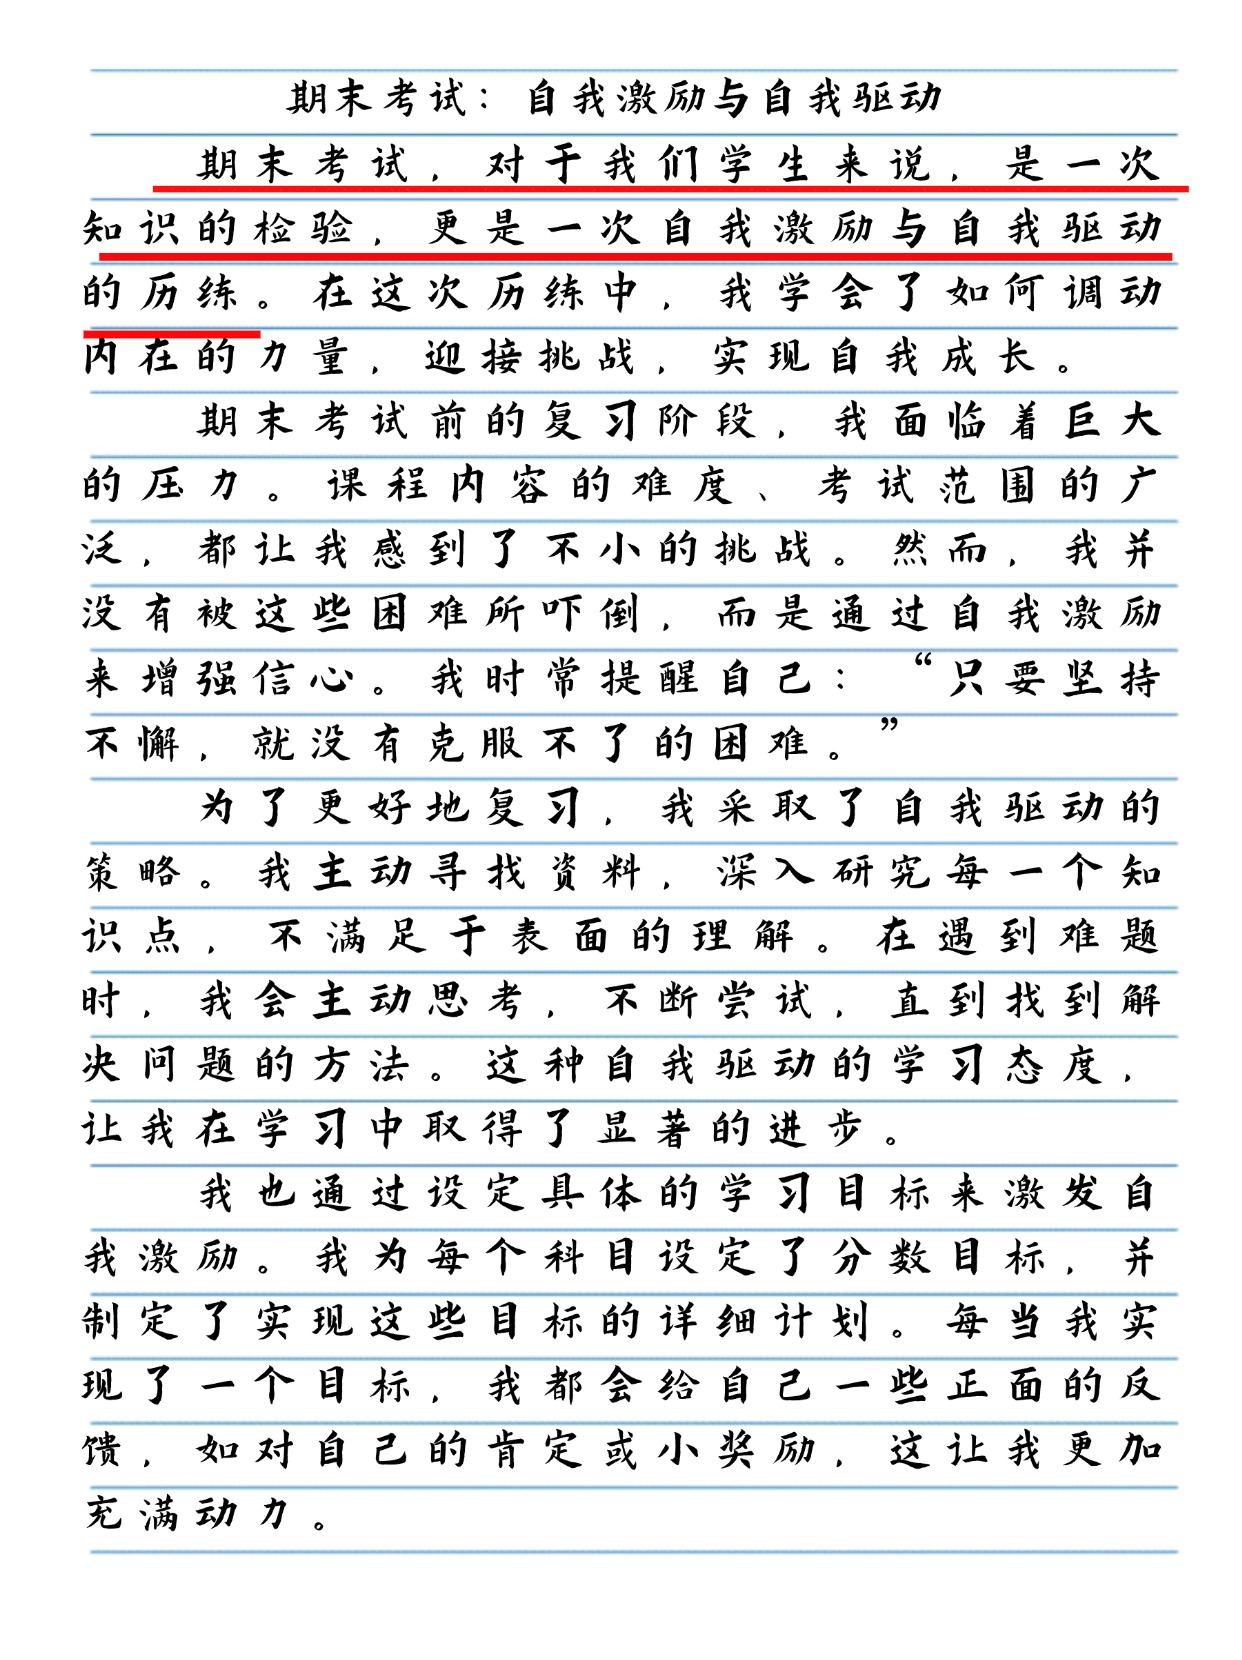 期末考试：自我激励与自我驱动
期末考试，对于我们学生来说，是一次
知识的检验，更是一次自我激励与自我驱动
的历练。在这次历练中，我学会了如何调动
内在的力量，迎接挑战，实现自我成长。
期末考试前的复习阶段，我面临着巨大
的压力。课程内容的难度、考试范围的广
泛，都让我感到了不小的挑战。然而，我并
没有被这些困难所吓倒，而是通过自我激励
来增强信心。我时常提醒自己：“只要坚持
不懈，就没有克服不了的困难。”
为了更好地复习，我采取了自我驱动的
策略。我主动寻找资料，深入研究每一个知
识点，不满足于表面的理解。在遇到难题
时，我会主动思考，不断尝试，直到找到解
决问题的方法。这种自我驱动的学习态度，
让我在学习中取得了显著的进步。
我也通过设定具体的学习目标来激发自
我激励。我为每个科目设定了分数目标，并
制定了实现这些目标的详细计划。每当我实
现了一个目标，我都会给自己一些正面的反
馈，如对自己的肯定或小奖励，这让我更加
充满动力。